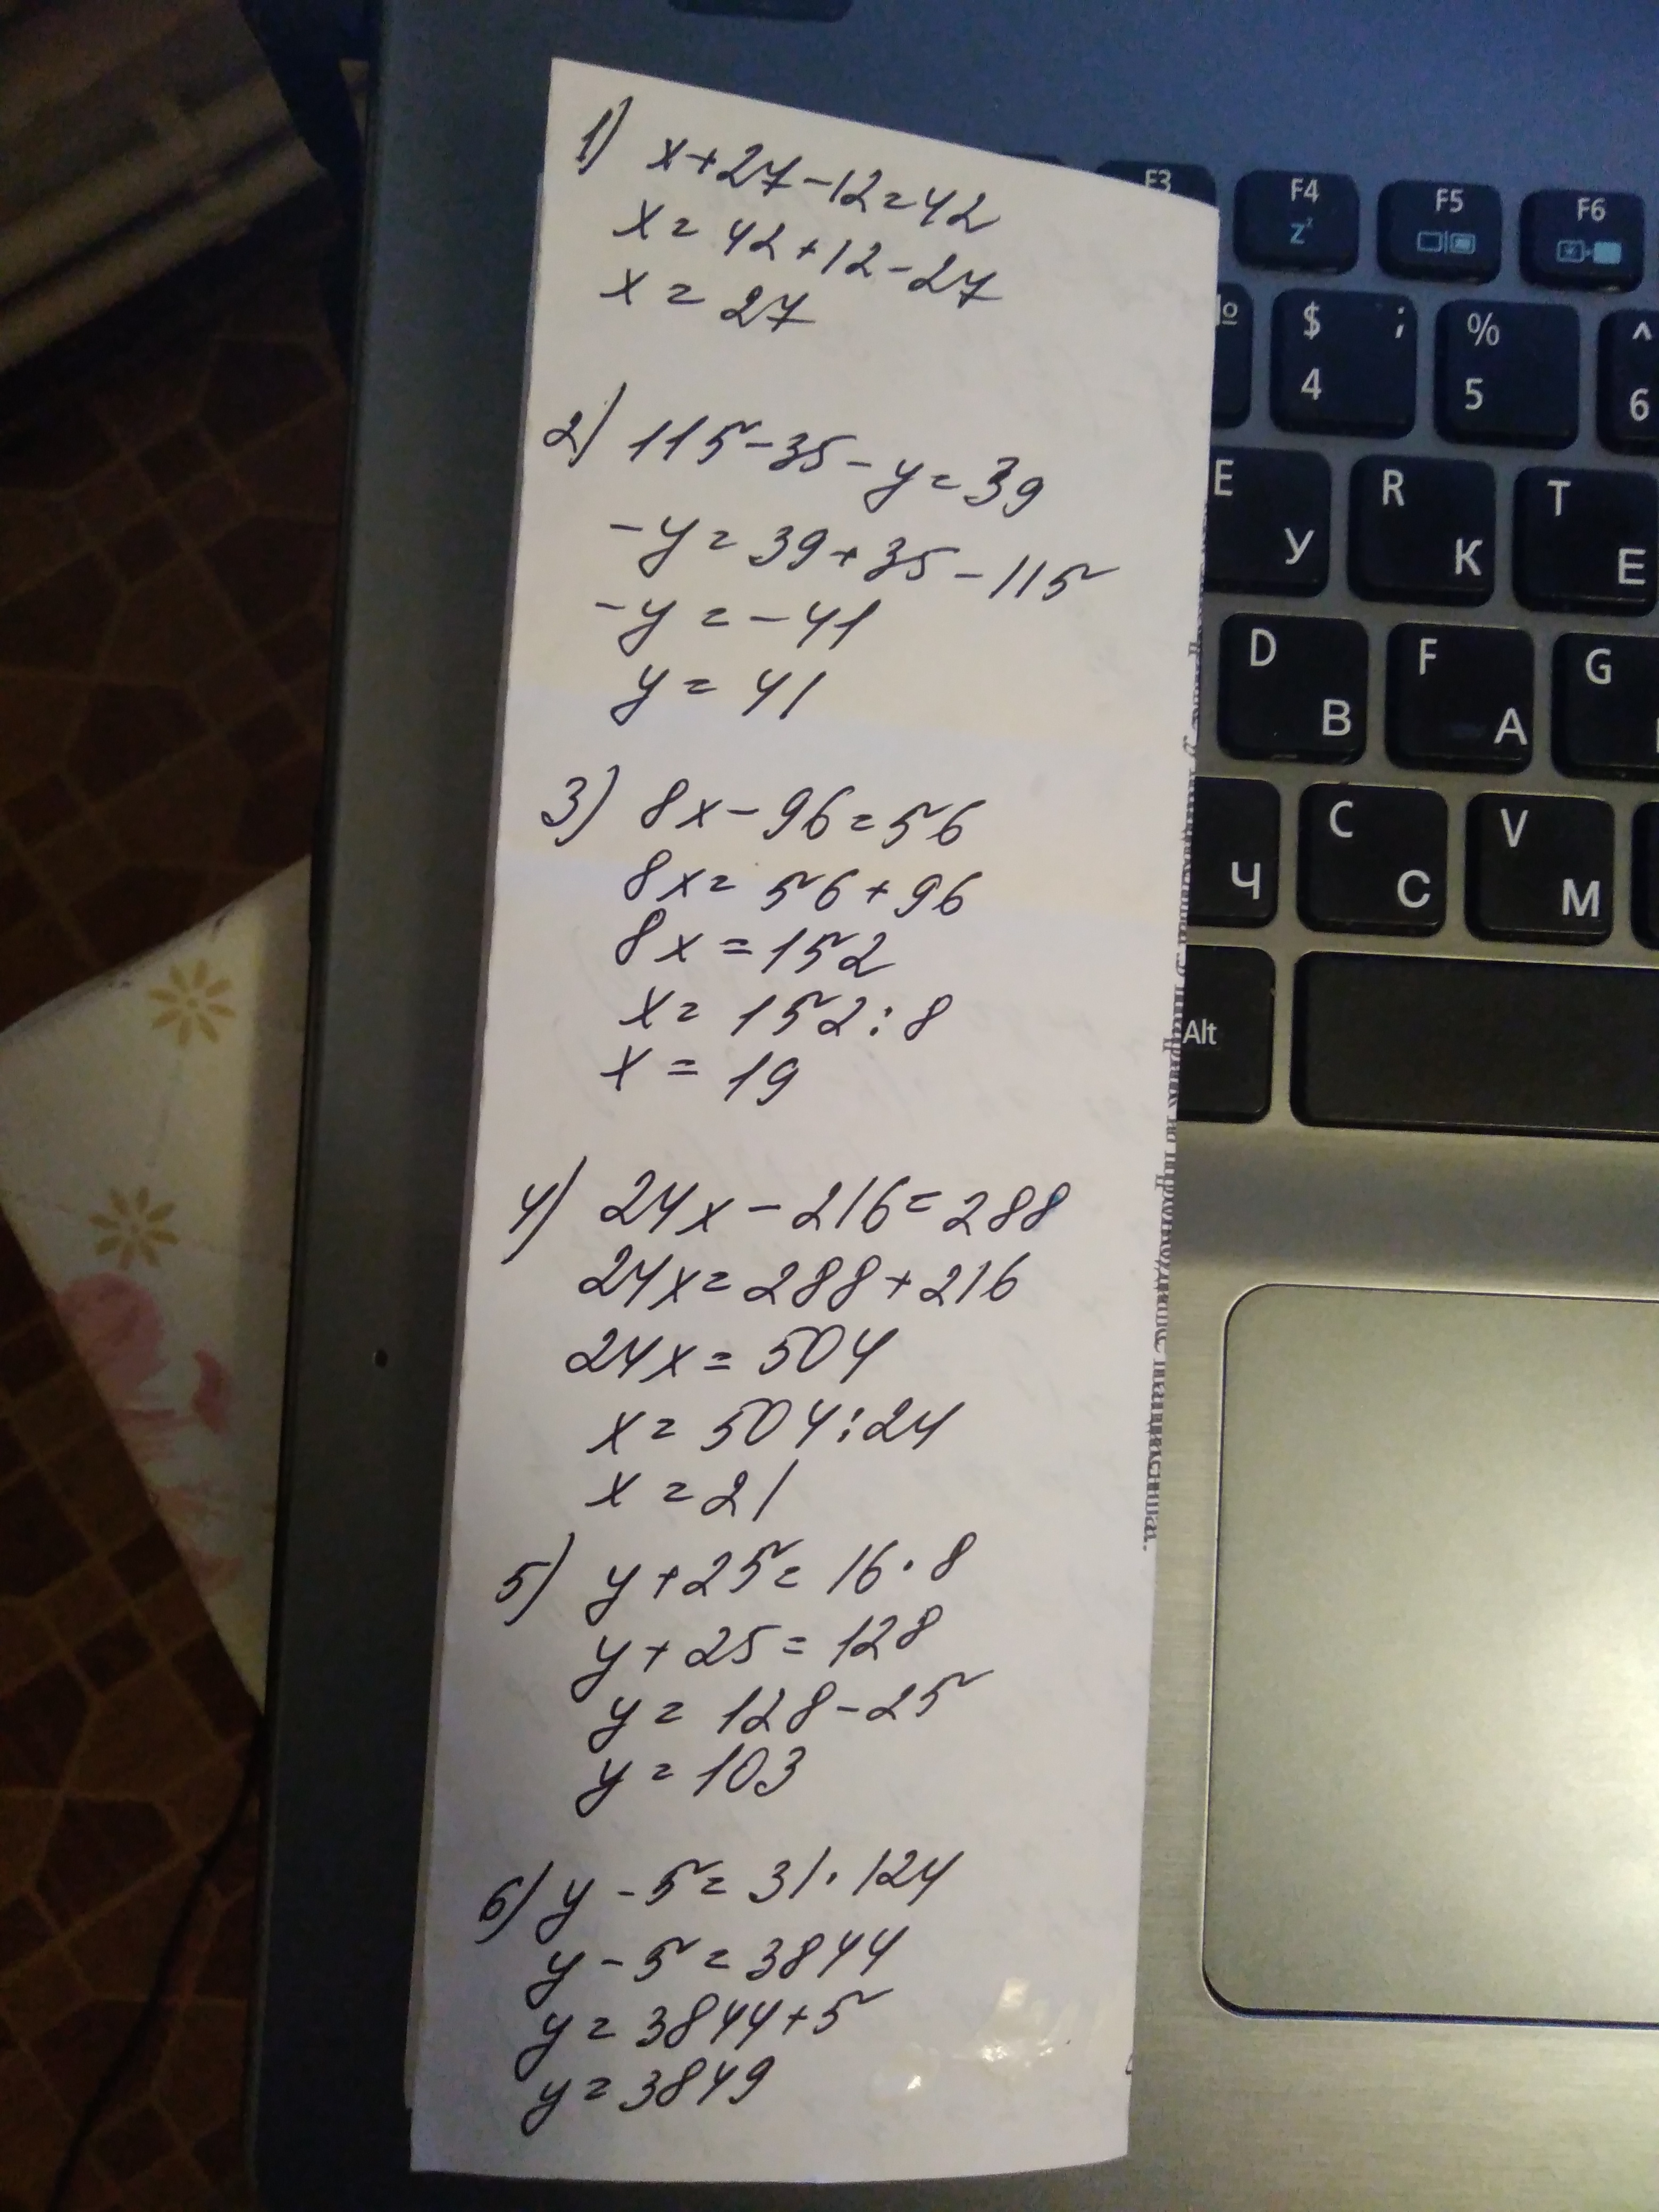 1) x+27-12=42
x=42+12-27
x=27
2) 115-35-y=39
-y=39+35-115
-y=-41
y=41
3) 8x-96=56
8x=56+96
8x=152
x=152:8
x=19
4) 24x-216=288
24x=288+216
24x=504
x=504:24
x=21
5) y+25=16·8
y+25=128
y=128-25
y=103
6) y-5=31·124
y-5=3844
y=3844+5
y=3849
F3
F4
Zz
F5
F6
№
$ ;
4
%
5
^
6
E
У
R
К
T
Е
D
В
F
А
G
Ч
C
С
V
М
Alt